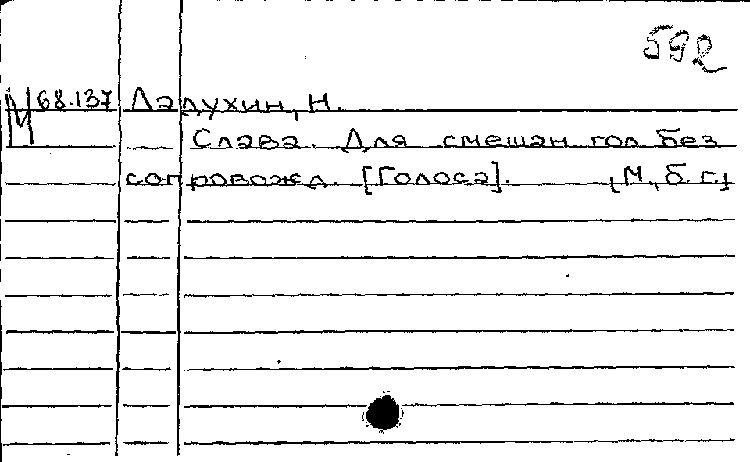 592
М 68.137 Ладухин, Н.
Слава. Для смешан гол без
сопровожд. [Голоса]. [М., б. г.]